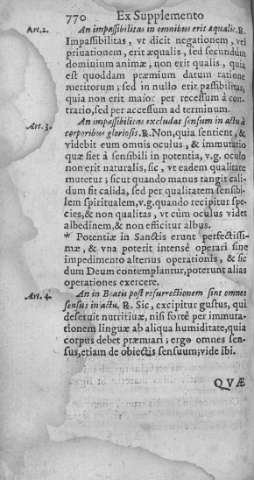 770 Ex Supplemento
Art.2. An impassibilitas in omnibus erit æqualis. R.
Impassibilitas, vt dicit negationem, vel
priuationem, erit æqualis, sed secundum
dominium animæ, non erit qualis, quia
est quoddam præmium datum ratione
meritorum; sed in nullo erit passibilitas,
quia non erit maior per recessum à con-
trario, sed per accessum ad terminum.
Art.3. An impassibilitas excludat sensum in actu à
corporibus gloriosis. R. Non, quia sentient, &
videbit eum omnis oculus, & immutatio
quæ fiet à sensibili in potentia, v.g. oculo
non erit naturalis, sic, vt eadem qualitate
mutetur; sicut quando manus tangit cali-
dum fit calida, sed per qualitatem sensibi-
lem spiritualem, v.g. quando recipitur spe-
cies, & non qualitas, vt cùm oculus videt
albedinem, & non efficitur albus.
* Potentiæ in Sanctis erunt perfectissi-
mæ, & vna poterit intensè operari sine
impedimento alterius operationis, & sic
dum Deum contemplantur, poterunt alias
operationes exercere.
Art.4. An in Beatis post resurrectionem sint omnes
sensus in actu, R. Sic, excipitur gustus, qui
deseruit nutritiuæ, nisi fortè per immuta-
tionem linguæ ab aliqua humiditate, quia
corpus debet præmiari; ergo omnes sen-
sus, etiam de obiectis sensuum; vide ibi.
QVÆ